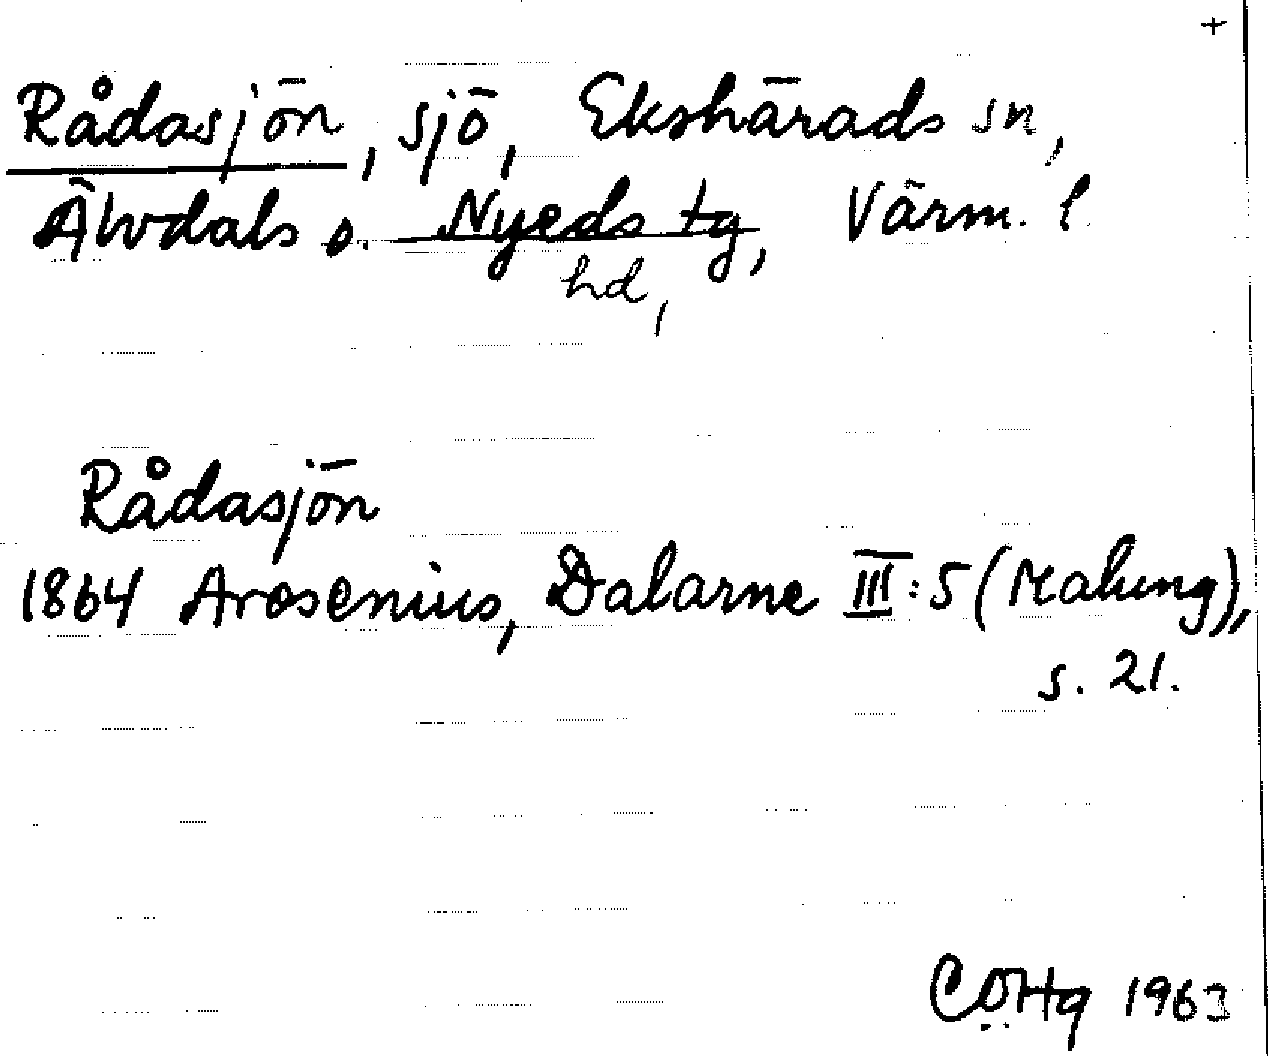 +
Rådasjön, sjö, Ekshärads sn,
Älvdals o. Nyeds tg, Värm. l
hd,
Rådasjön
1864 Arosenius, Dalarne III:5 (Malung),
s. 21.
1963